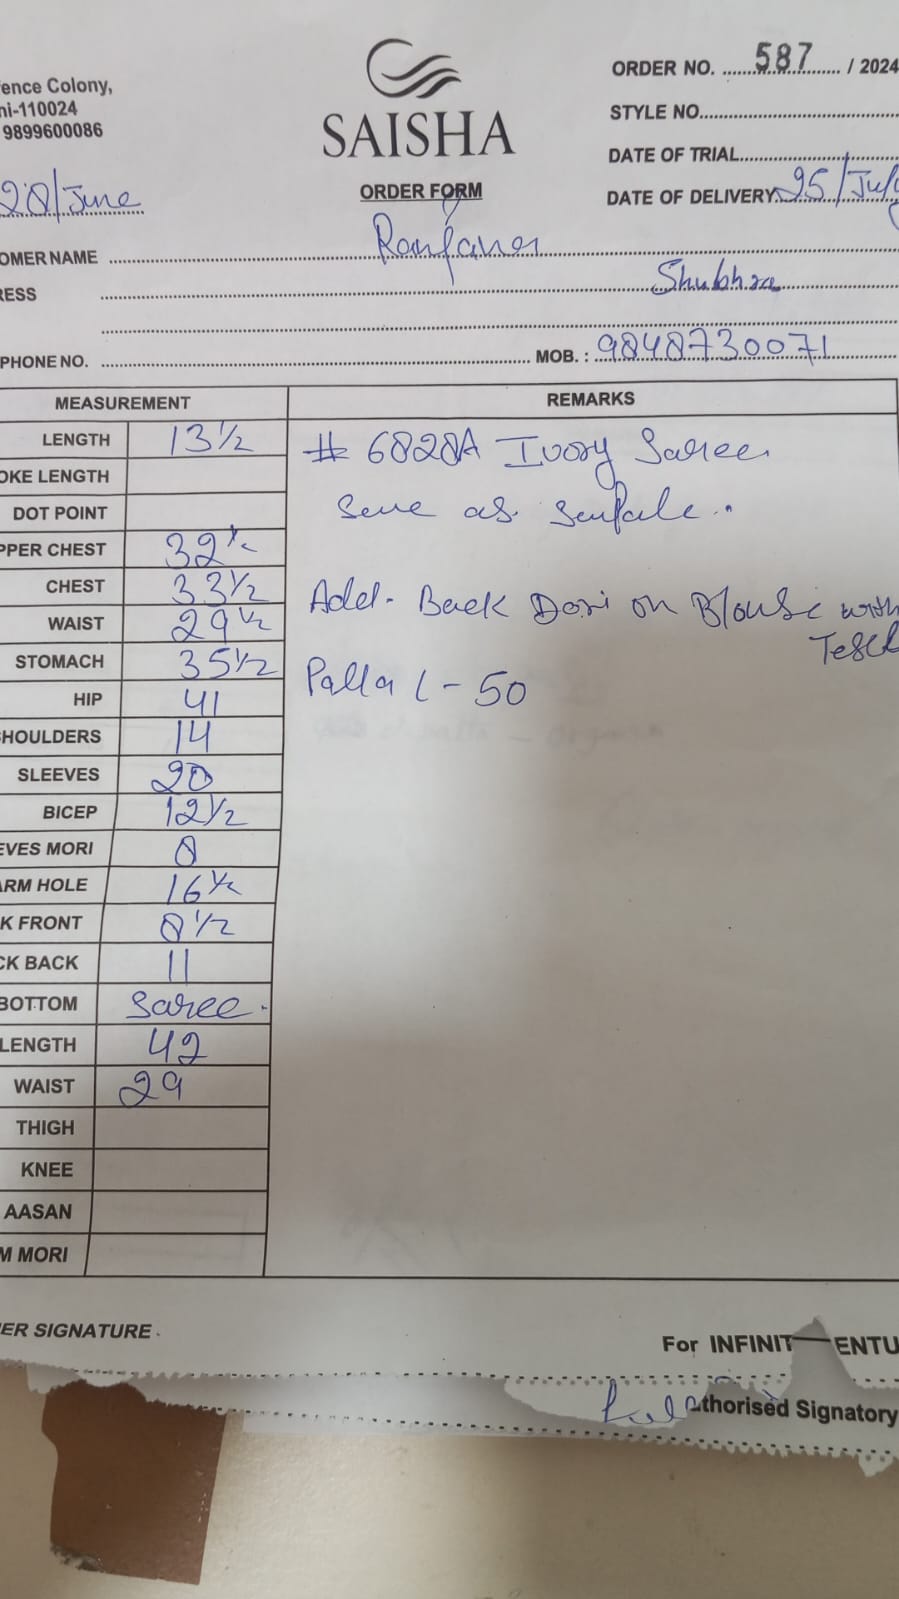 ence Colony,
ni-110024
9899600086
SAISHA
ORDER FORM
ORDER NO. 587 / 2024
STYLE NO.
DATE OF TRIAL
DATE OF DELIVERY 25/July
28/June
OMER NAME
RESS Shubhra
PHONE NO. MOB. : 9848730071
MEASUREMENT REMARKS
LENGTH 13 1/2
OKE LENGTH
DOT POINT
PPER CHEST 32 1/2
CHEST 33 1/2
WAIST 29 1/2
STOMACH 35 1/2
HIP 41
SHOULDERS 14
SLEEVES 20
BICEP 12 1/2
EVES MORI 8
ARM HOLE 16 1/2
K FRONT 8 1/2
CK BACK 11
BOTTOM Saree.
LENGTH 42
WAIST 29
THIGH
KNEE
AASAN
M MORI
# 6828A Ivory Saree
as
Add. Back Dori on Blouse with
Palla L - 50
ER SIGNATURE
For INFINIT ENTU
thorised Signatory